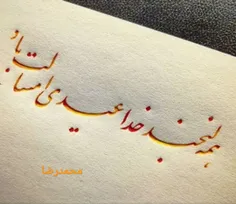 همه لبخند خدا عیدی امسالت باد
محمدرضا